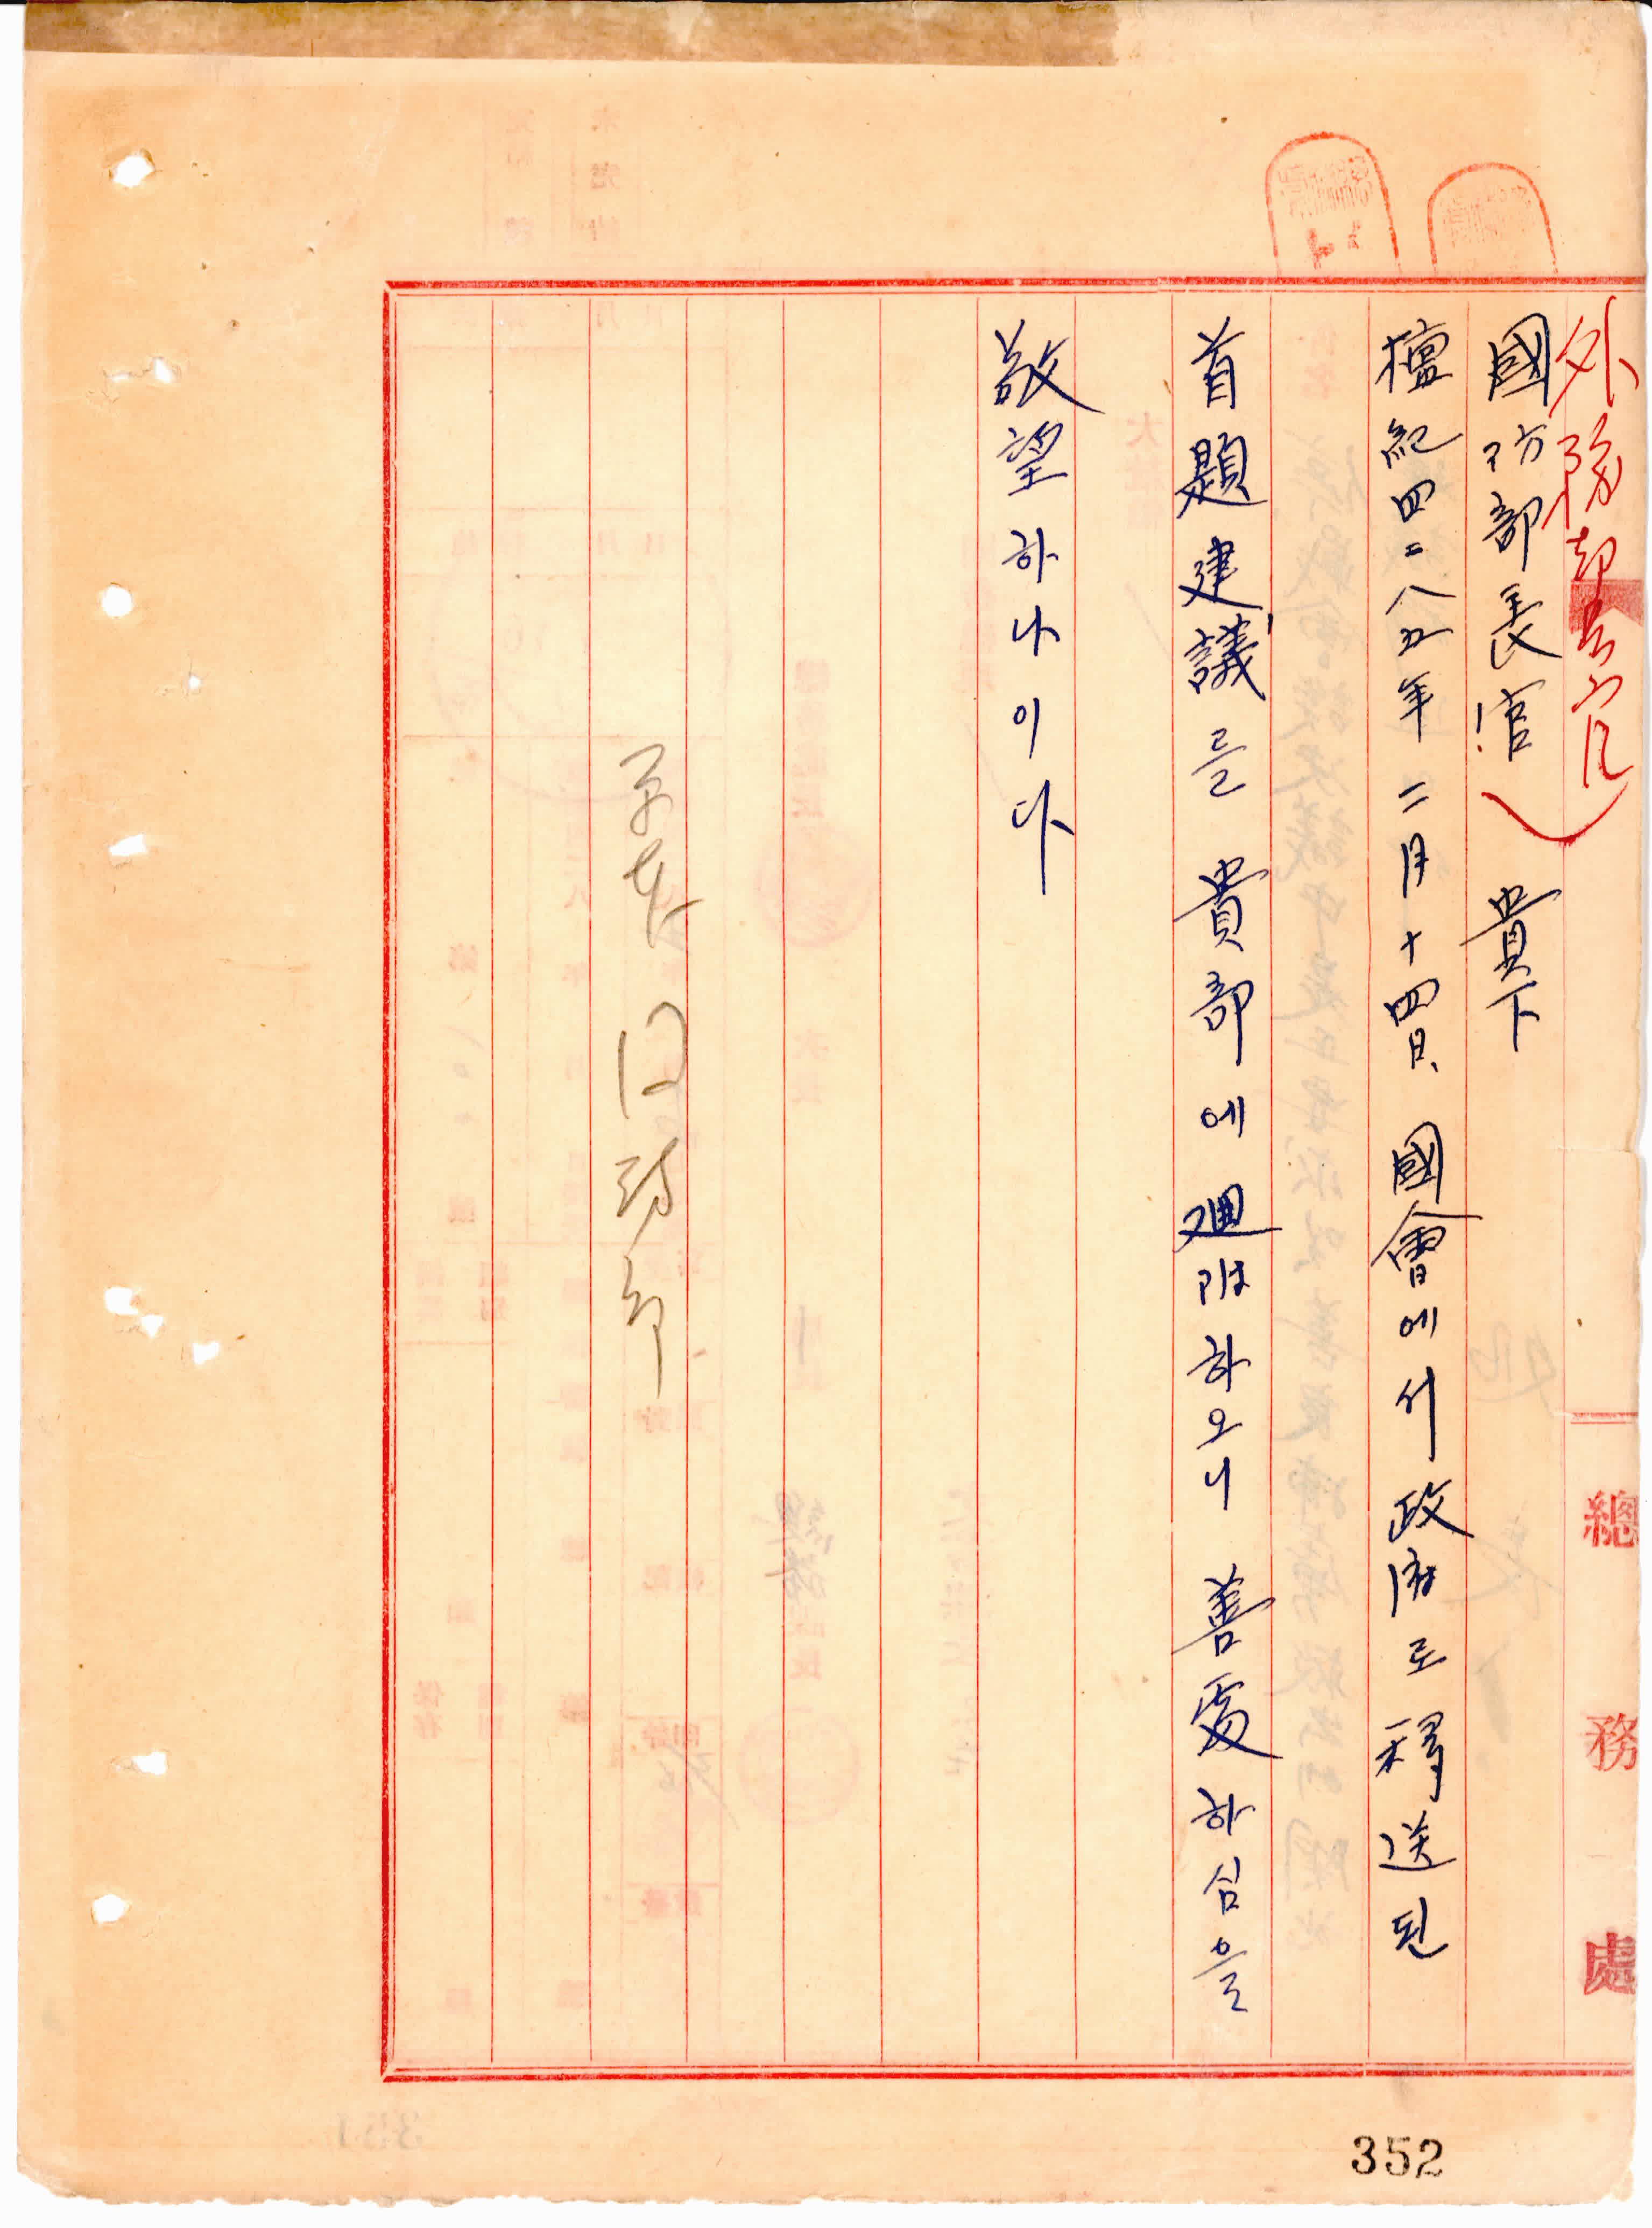 外務部長官
國防部長官 貴下
檀紀四二八五年 二月十四日 國會에서 政府로 移送된
首題建議를 貴部에 廻附하오니 善處하심을
敬望하나이다
總務處
352